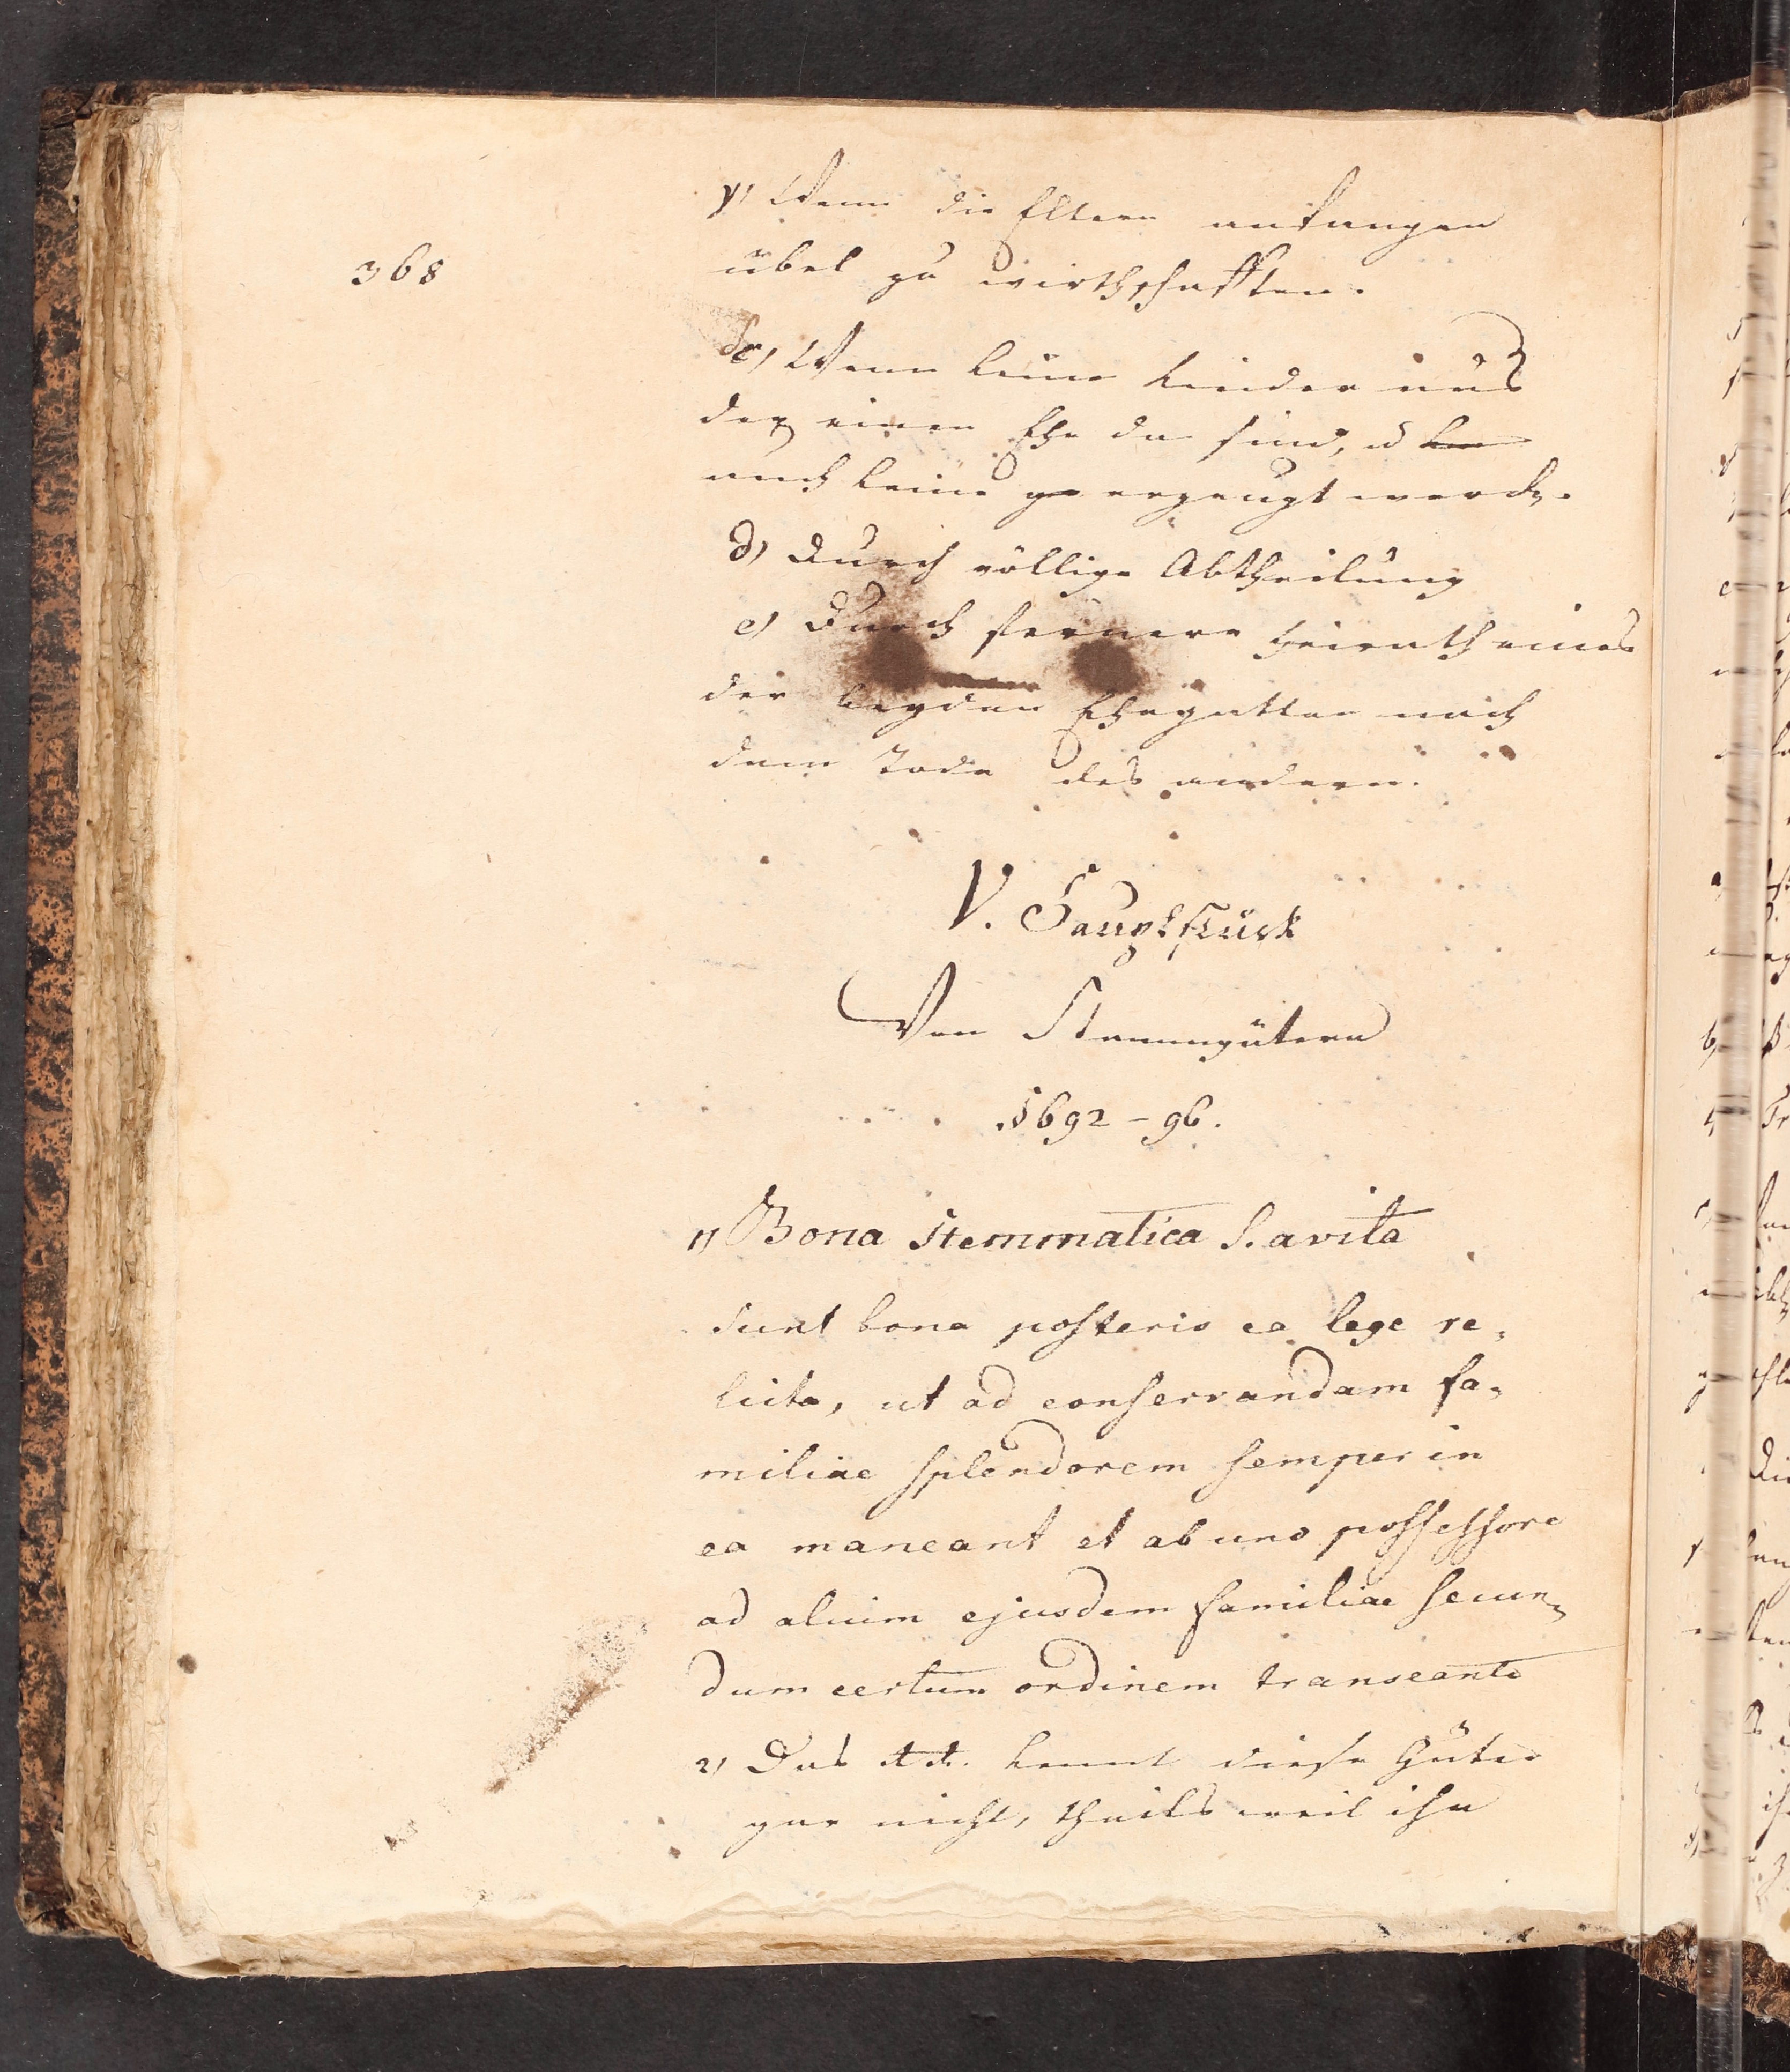 368
γ) Wenn die Eltern anfangen
übel zu wirthschafften.
c) Wenn keine Kinder aus
der einen Ehe da sind, u
auch keine ge erzeugt werdn.
d) Durch völlige Abtheilung
e) Durch fernere Heirath eines
der beyden Ehegatten nach
dem Tode des andern.
V. Hauptstück
Von Stammgütern
§ 692 - 96.
1) Bona stemmatica S. avita
sunt bona posteris ea lege re,
licta, ut ad conservandam fa,
miliae splendorem semper in
ea maneant et ab uno possessore
ad alium ejusdem familiae secun,
dum certum ordinem transeant
2) Das kennt diese Güter
gar nicht, theils weil ihn